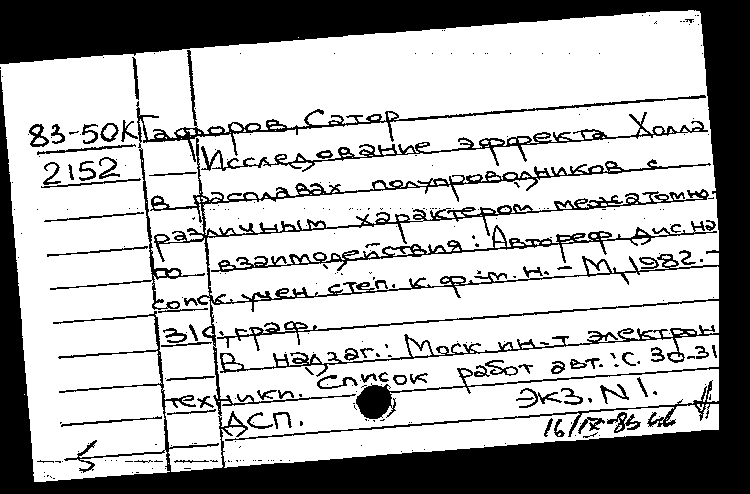 83-50К Гафоров, Сатор
2152 Исследование эффекта Холла
в расплавах полупроводников с
различным характером межатомно-
го взаимодействия: Автореф. дис. на
соиск. учен. степ. к. ф.-м. н. - М., 1982.-
31с., граф.
В надзаг.: Моск. ин-т электрон
техники. Список работ авт.: с. 30-31
ДСП. Экз. N 1.
16/IX-85
5